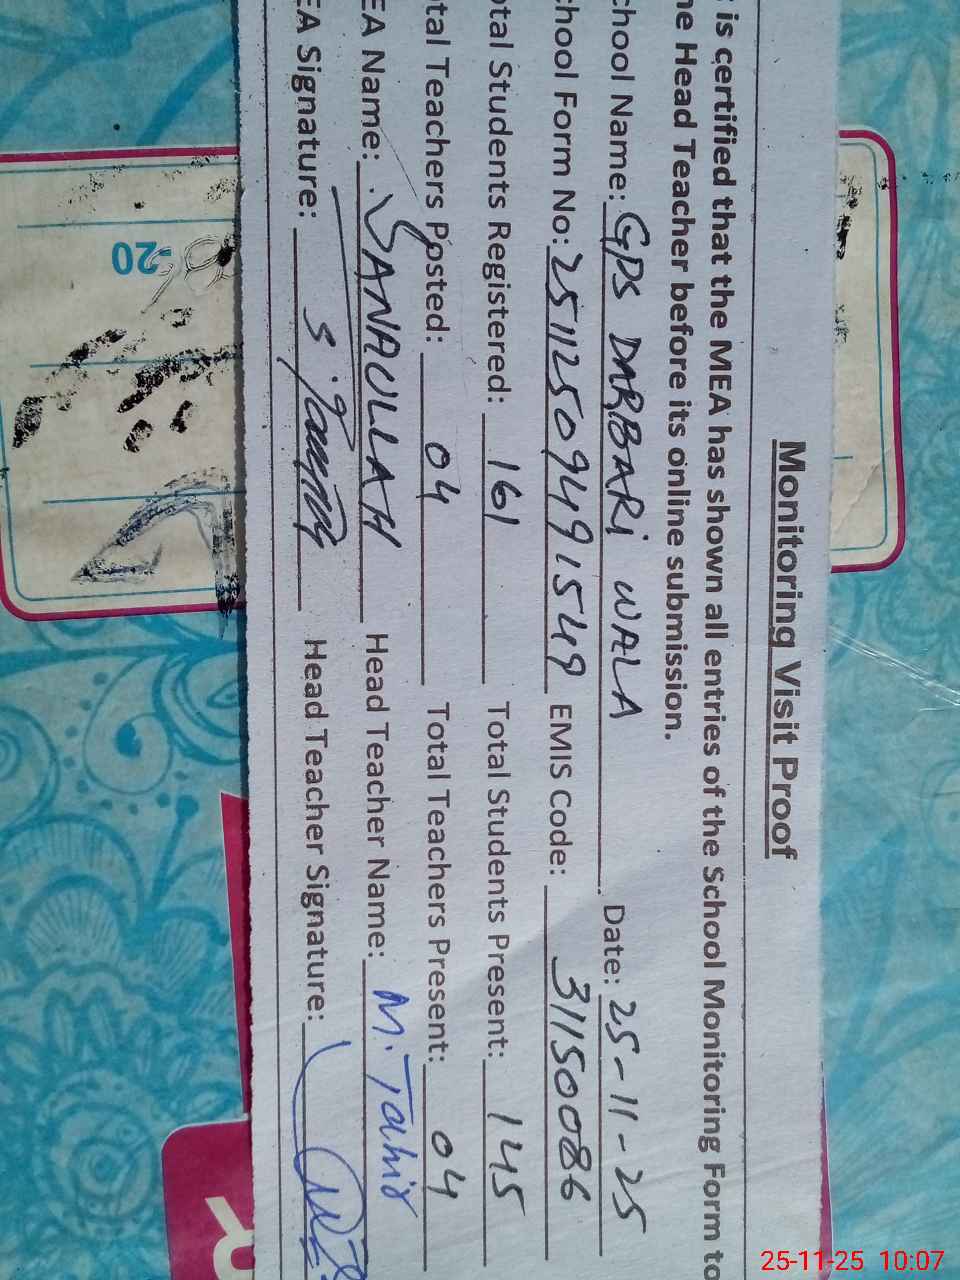 Monitoring Visit Proof
is certified that the MEA has shown all entries of the School Monitoring Form to
he Head Teacher before its online submission.
chool Name: GPS DARBARI WALA Date: 25-11-25
chool Form No: 25112509491549 EMIS Code: 31150086
otal Students Registered: 161 Total Students Present: 145
otal Teachers Posted: 04 Total Teachers Present: 04
EA Name: SANAULLAH Head Teacher Name: M. Tahir
EA Signature: Head Teacher Signature:
20
R
25-11-25 10:07